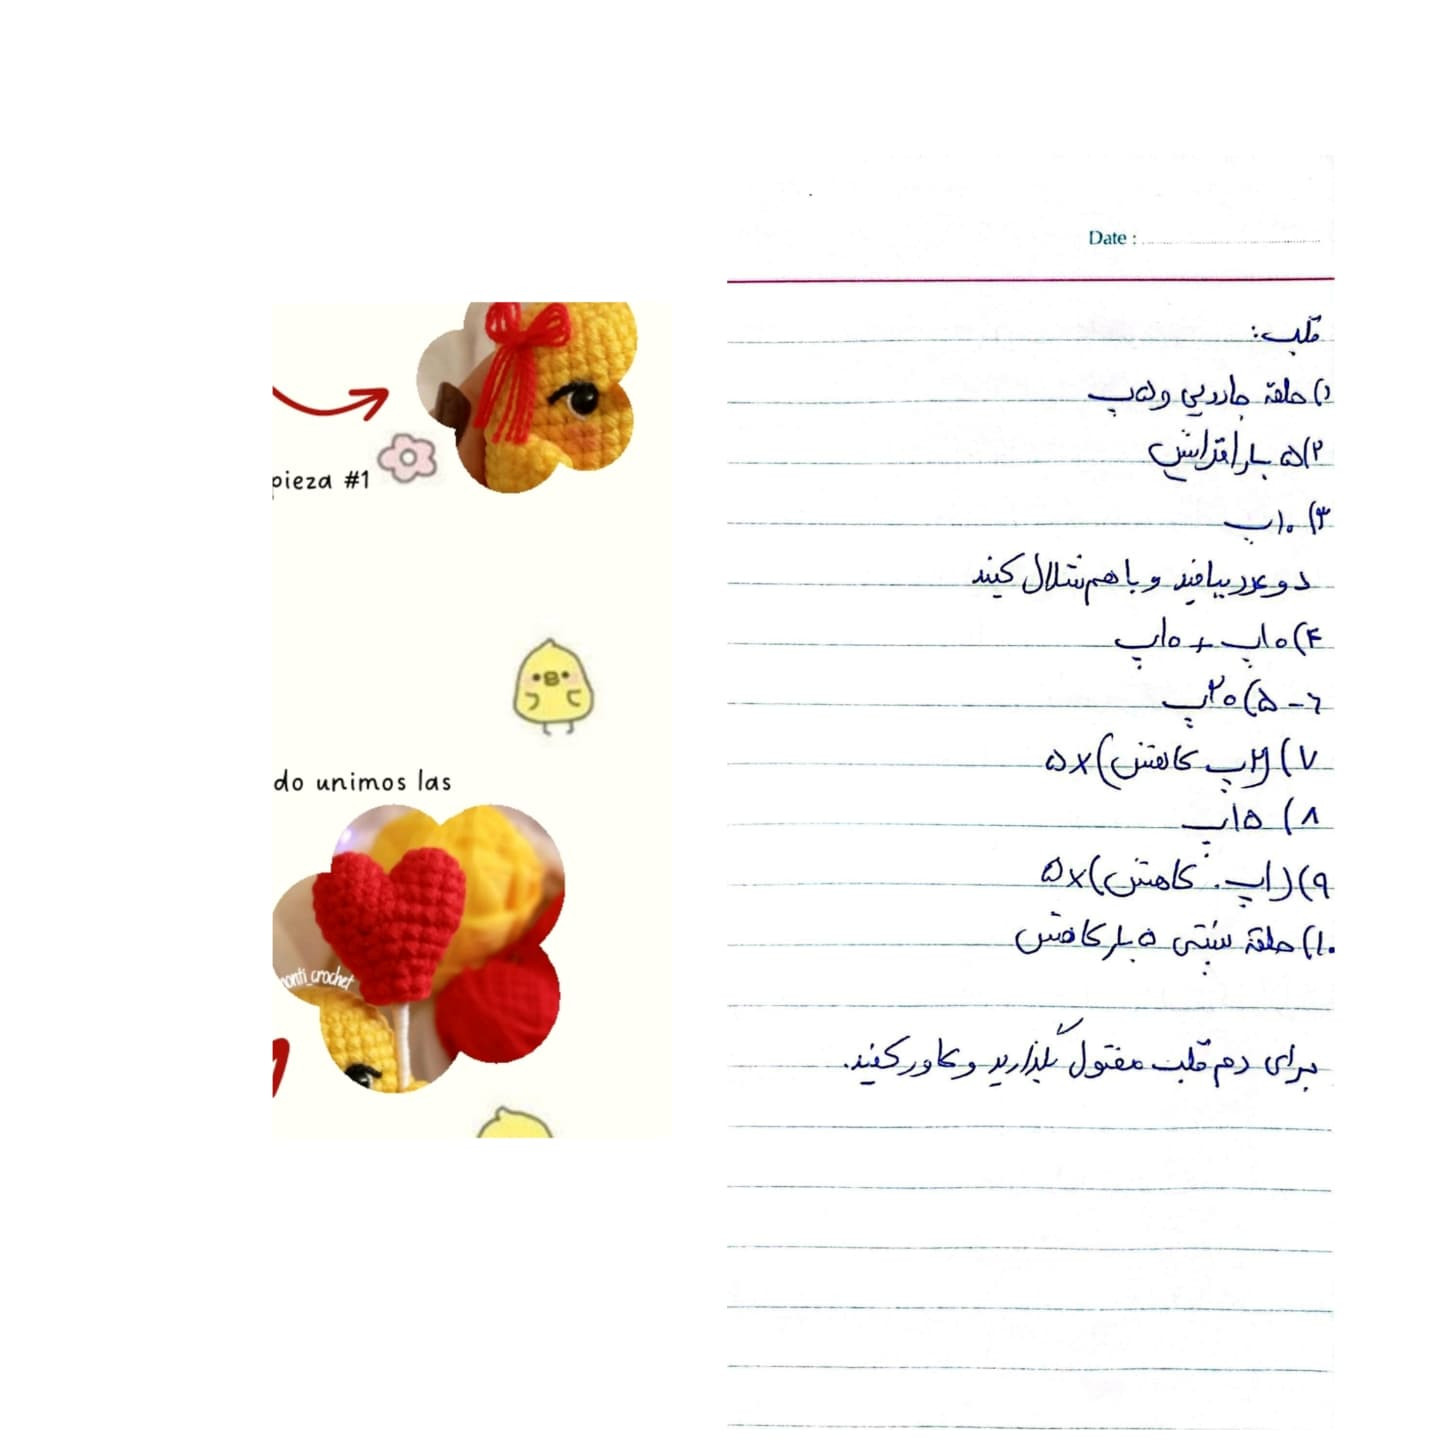 pieza #1
do unimos las
monti_crochet
Date :
قلب:
۱) حلقه جادویی و ۵پ
۲) ۵ بار افزایش
۳) ۱۰پ
دو عدد ببافید و با هم شلال کنید
۴) ۱۰پ + ۱۰پ
۵-۶) ۲۰پ
۷) (۲پ کاهش)×۵
۸) ۱۵پ
۹) (۱پ. کاهش)×۵
۱۰) حلقه بستی ۵ بار کاهش
برای دم قلب مفتول بگذارید و کاور کنید.